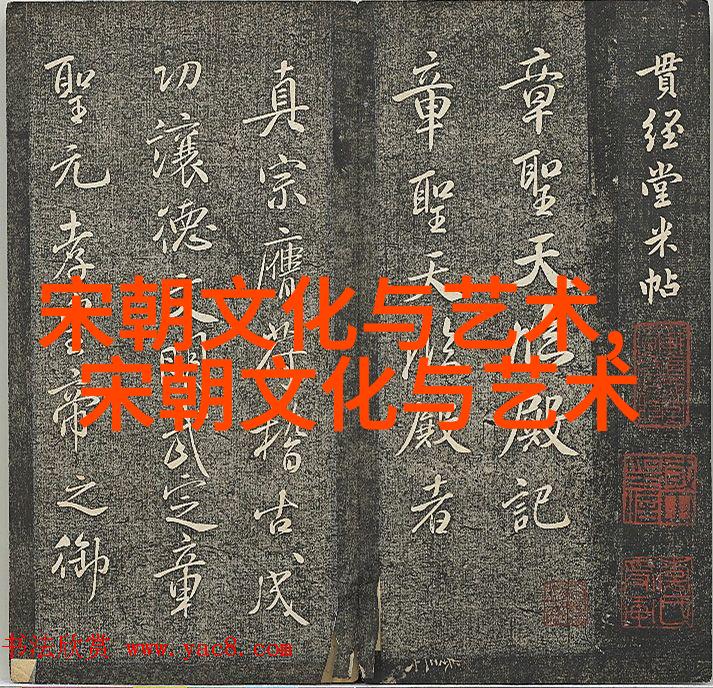 貫經堂米帖
章聖天臨殿記
章聖天臨殿者
真宗膺符稽古成
功讓德文明武定章
聖元孝皇帝之御
宋朝文化与艺术,
宋朝文化与艺术
书法欣赏 www.yac8.com